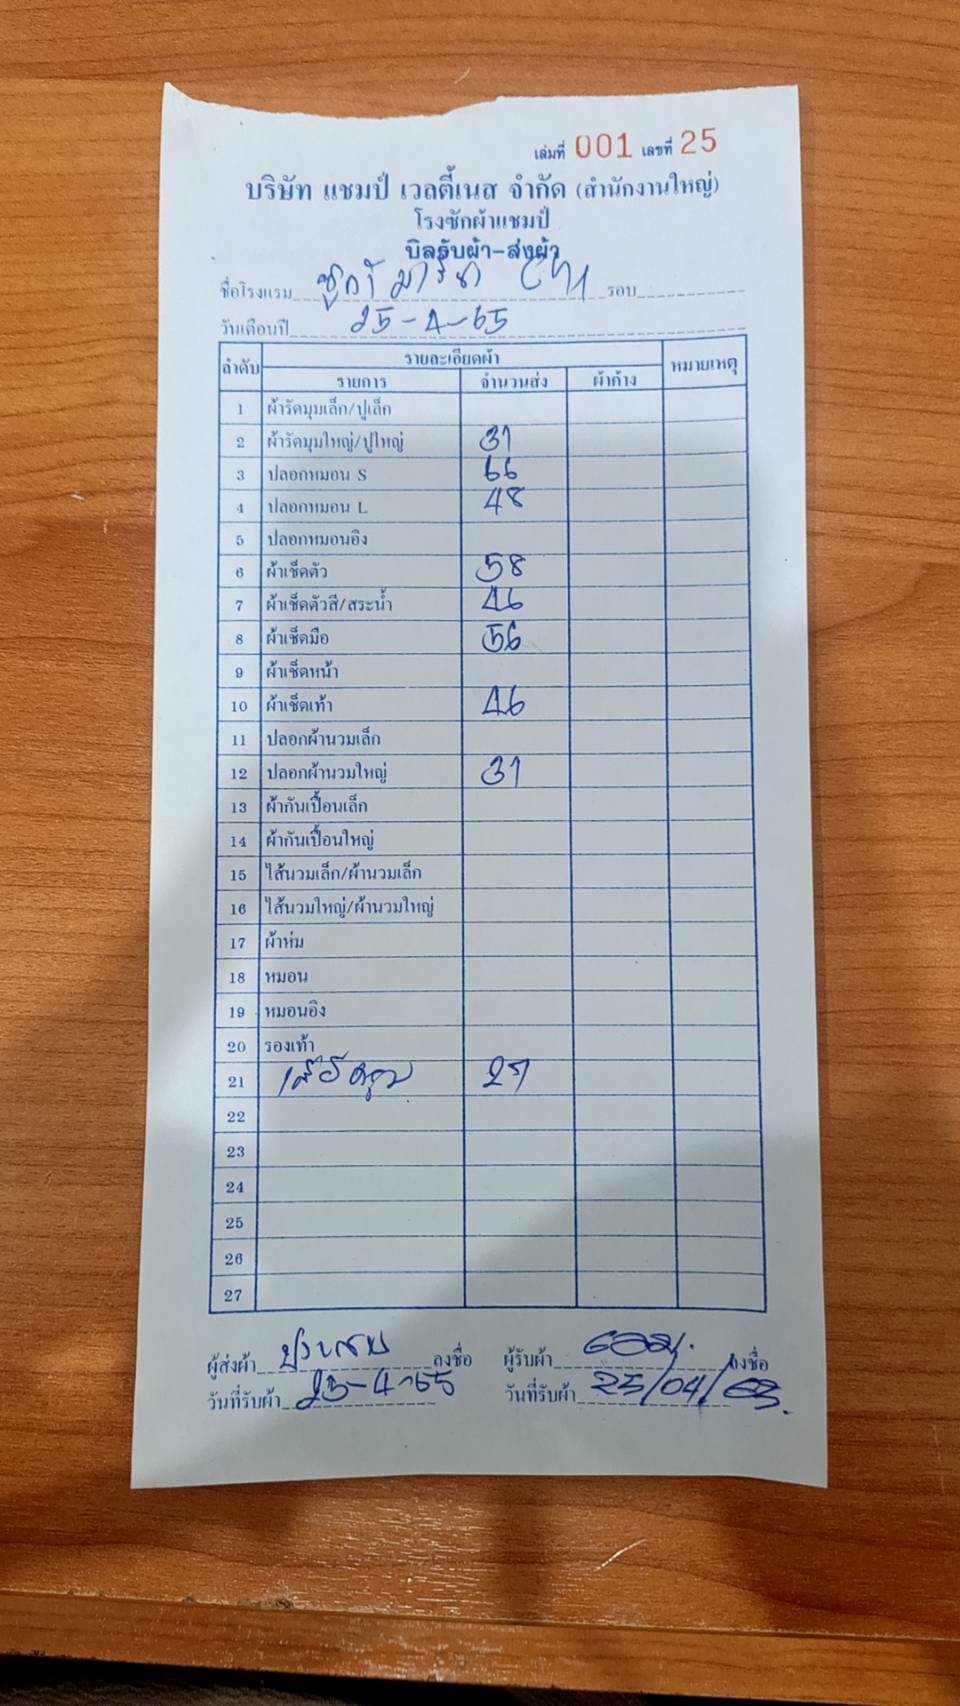 เล่มที่ 001 เลขที่ 25
บริษัท แชมป์ เวลตี้เนส จำกัด (สำนักงานใหญ่)
โรงซักผ้าแชมป์
บิลรับผ้า-ส่งผ้า
ชื่อโรงแรม รอบ
วันเดือนปี 25-4-65
ลำดับ รายละเอียดผ้า หมายเหตุ
รายการ จำนวนส่ง ผ้าค้าง
1 ผ้ารัดมุมเล็ก/ปูเล็ก
2 ผ้ารัดมุมใหญ่/ปูใหญ่ 31
3 ปลอกหมอน S 66
4 ปลอกหมอน L 48
5 ปลอกหมอนอิง
6 ผ้าเช็ดตัว 58
7 ผ้าเช็ดตัวสี/สระน้ำ 46
8 ผ้าเช็ดมือ 56
9 ผ้าเช็ดหน้า
10 ผ้าเช็ดเท้า 46
11 ปลอกผ้านวมเล็ก
12 ปลอกผ้านวมใหญ่ 31
13 ผ้ากันเปื้อนเล็ก
14 ผ้ากันเปื้อนใหญ่
15 ไส้นวมเล็ก/ผ้านวมเล็ก
16 ไส้นวมใหญ่/ผ้านวมใหญ่
17 ผ้าห่ม
18 หมอน
19 หมอนอิง
20 รองเท้า
21 เสื้อคลุม
22
23
24
25
26
27
ผู้ส่งผ้า ลงชื่อ ผู้รับผ้า ลงชื่อ
วันที่รับผ้า 25-4-65 วันที่รับผ้า 25/04/